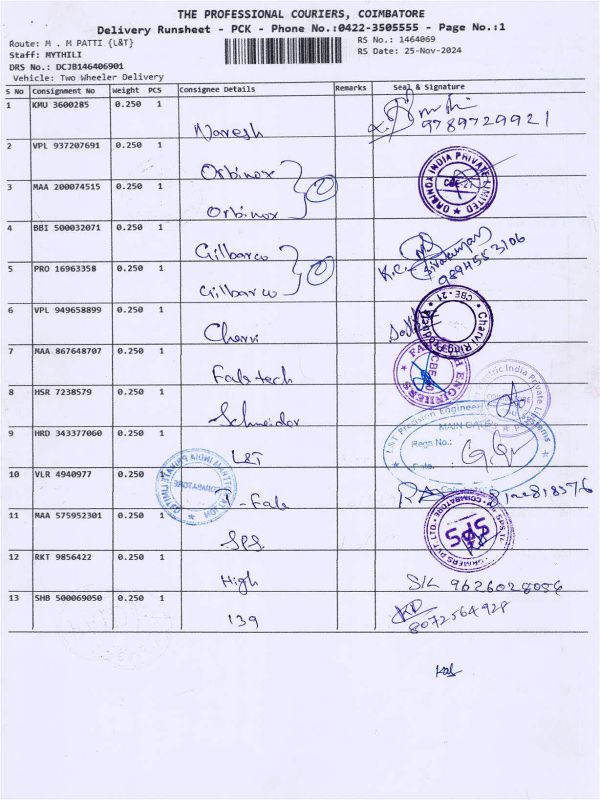 THE PROFESSIONAL COURIERS, COIMBATORE
Delivery Runsheet - PCK - Phone No.:0422-3505555 - Page No.:1
Route: M . M PATTI {L&T}
RS No.: 1464069
Staff: MYTHILI
RS Date: 25-Nov-2024
DRS No.: DCJB146406901
Vehicle: Two Wheeler Delivery
S No Consignment No Weight PCS Consignee Details Remarks Seal & Signature
1 KMU 3600285 0.250 1 Naresh 9789729921
2 VPL 937207691 0.250 1 Orbinox
ORBINOX INDIA PRIVATE LIMITED
CBE-21
3 MAA 200074515 0.250 1 Orbinox
4 BBI 500032071 0.250 1 Gilbarco
K.C. Sivakumar
5 PRO 16963358 0.250 1 Gilbarco
6 VPL 949658899 0.250 1 Charvi
CBE - 21
7 MAA 867648707 0.250 1 Fabtech
ENGINEERS
8 HSR 7238579 0.250 1 Schneider
9 HRD 343377060 0.250 1 L&T
L&T Precision Engineering Systems
MAIN GATE
Regn No.:
Date
10 VLR 4940977 0.250 1
COIMBATORE
11 MAA 575952301 0.250 1 SPS
SPS
COIMBATORE
12 RKT 9856422 0.250 1 High S/L 9626028056
13 SHB 500069050 0.250 1 139 8072564928